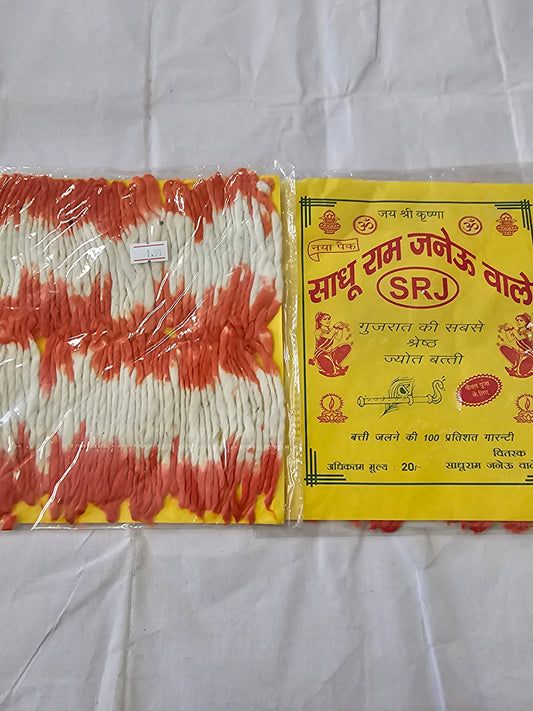 1.99
जय श्री कृष्णा
नया पैक
साधू राम जनेऊ वाले
SRJ
गुजरात की सबसे
श्रेष्ठ
ज्योत बत्ती
केवल पूजा
के लिए
बत्ती जलने की 100 प्रतिशत गारन्टी
वितरक
अधिकतम मूल्य : 20/-
साधूराम जनेऊ वाले